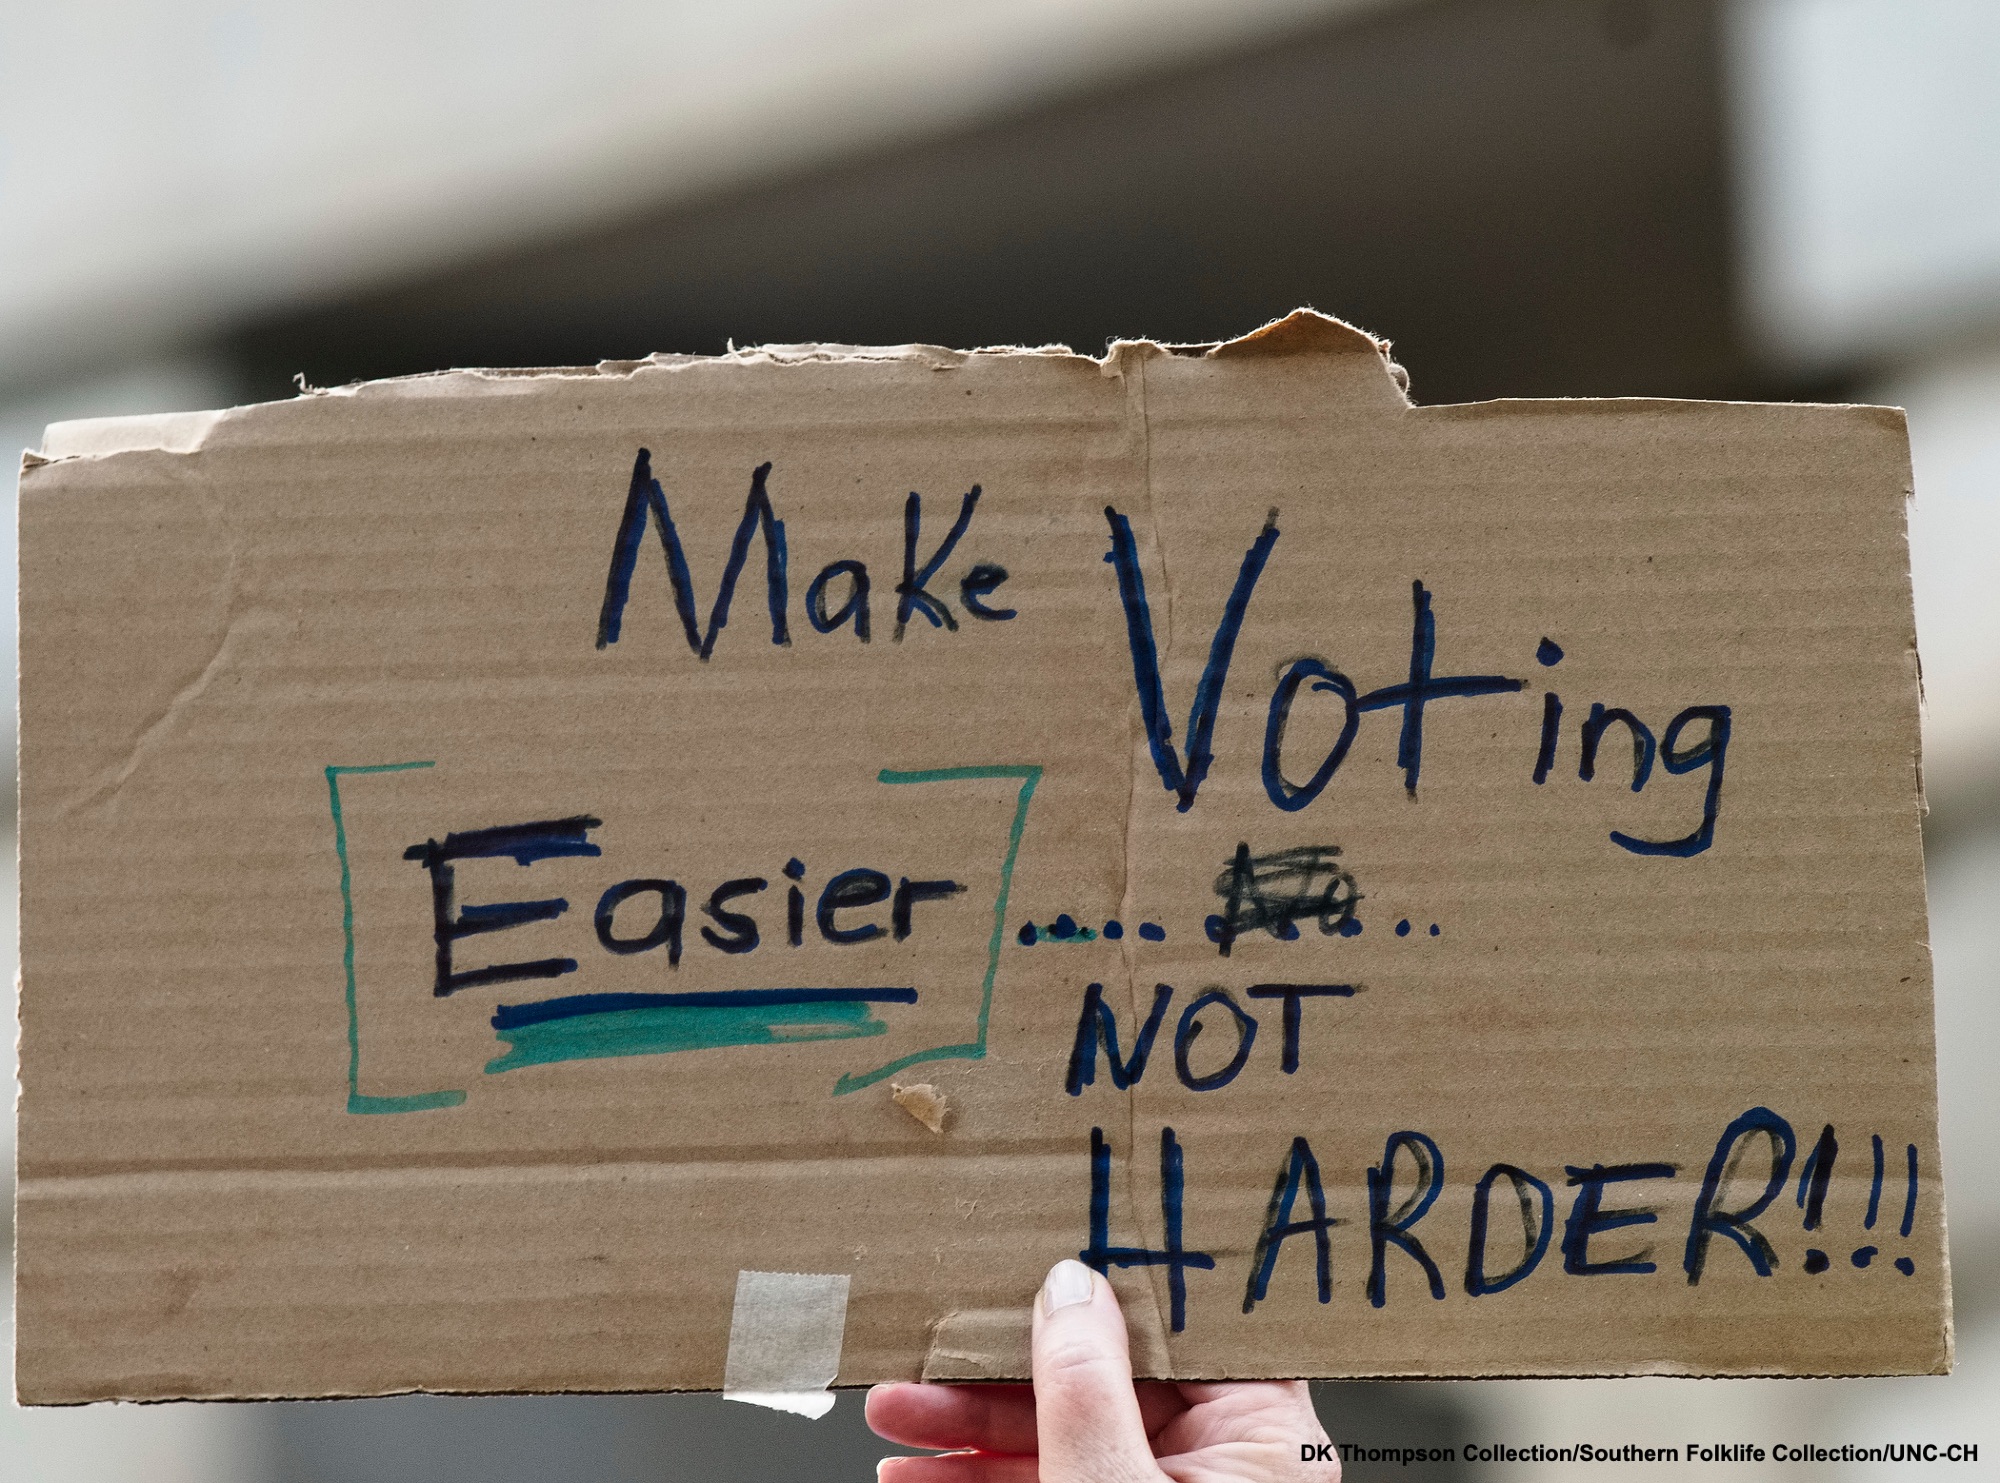 Make Voting
Easier......... ..
NOT
HARDER!!!
DK Thompson Collection/Southern Folklife Collection/UNC-CH